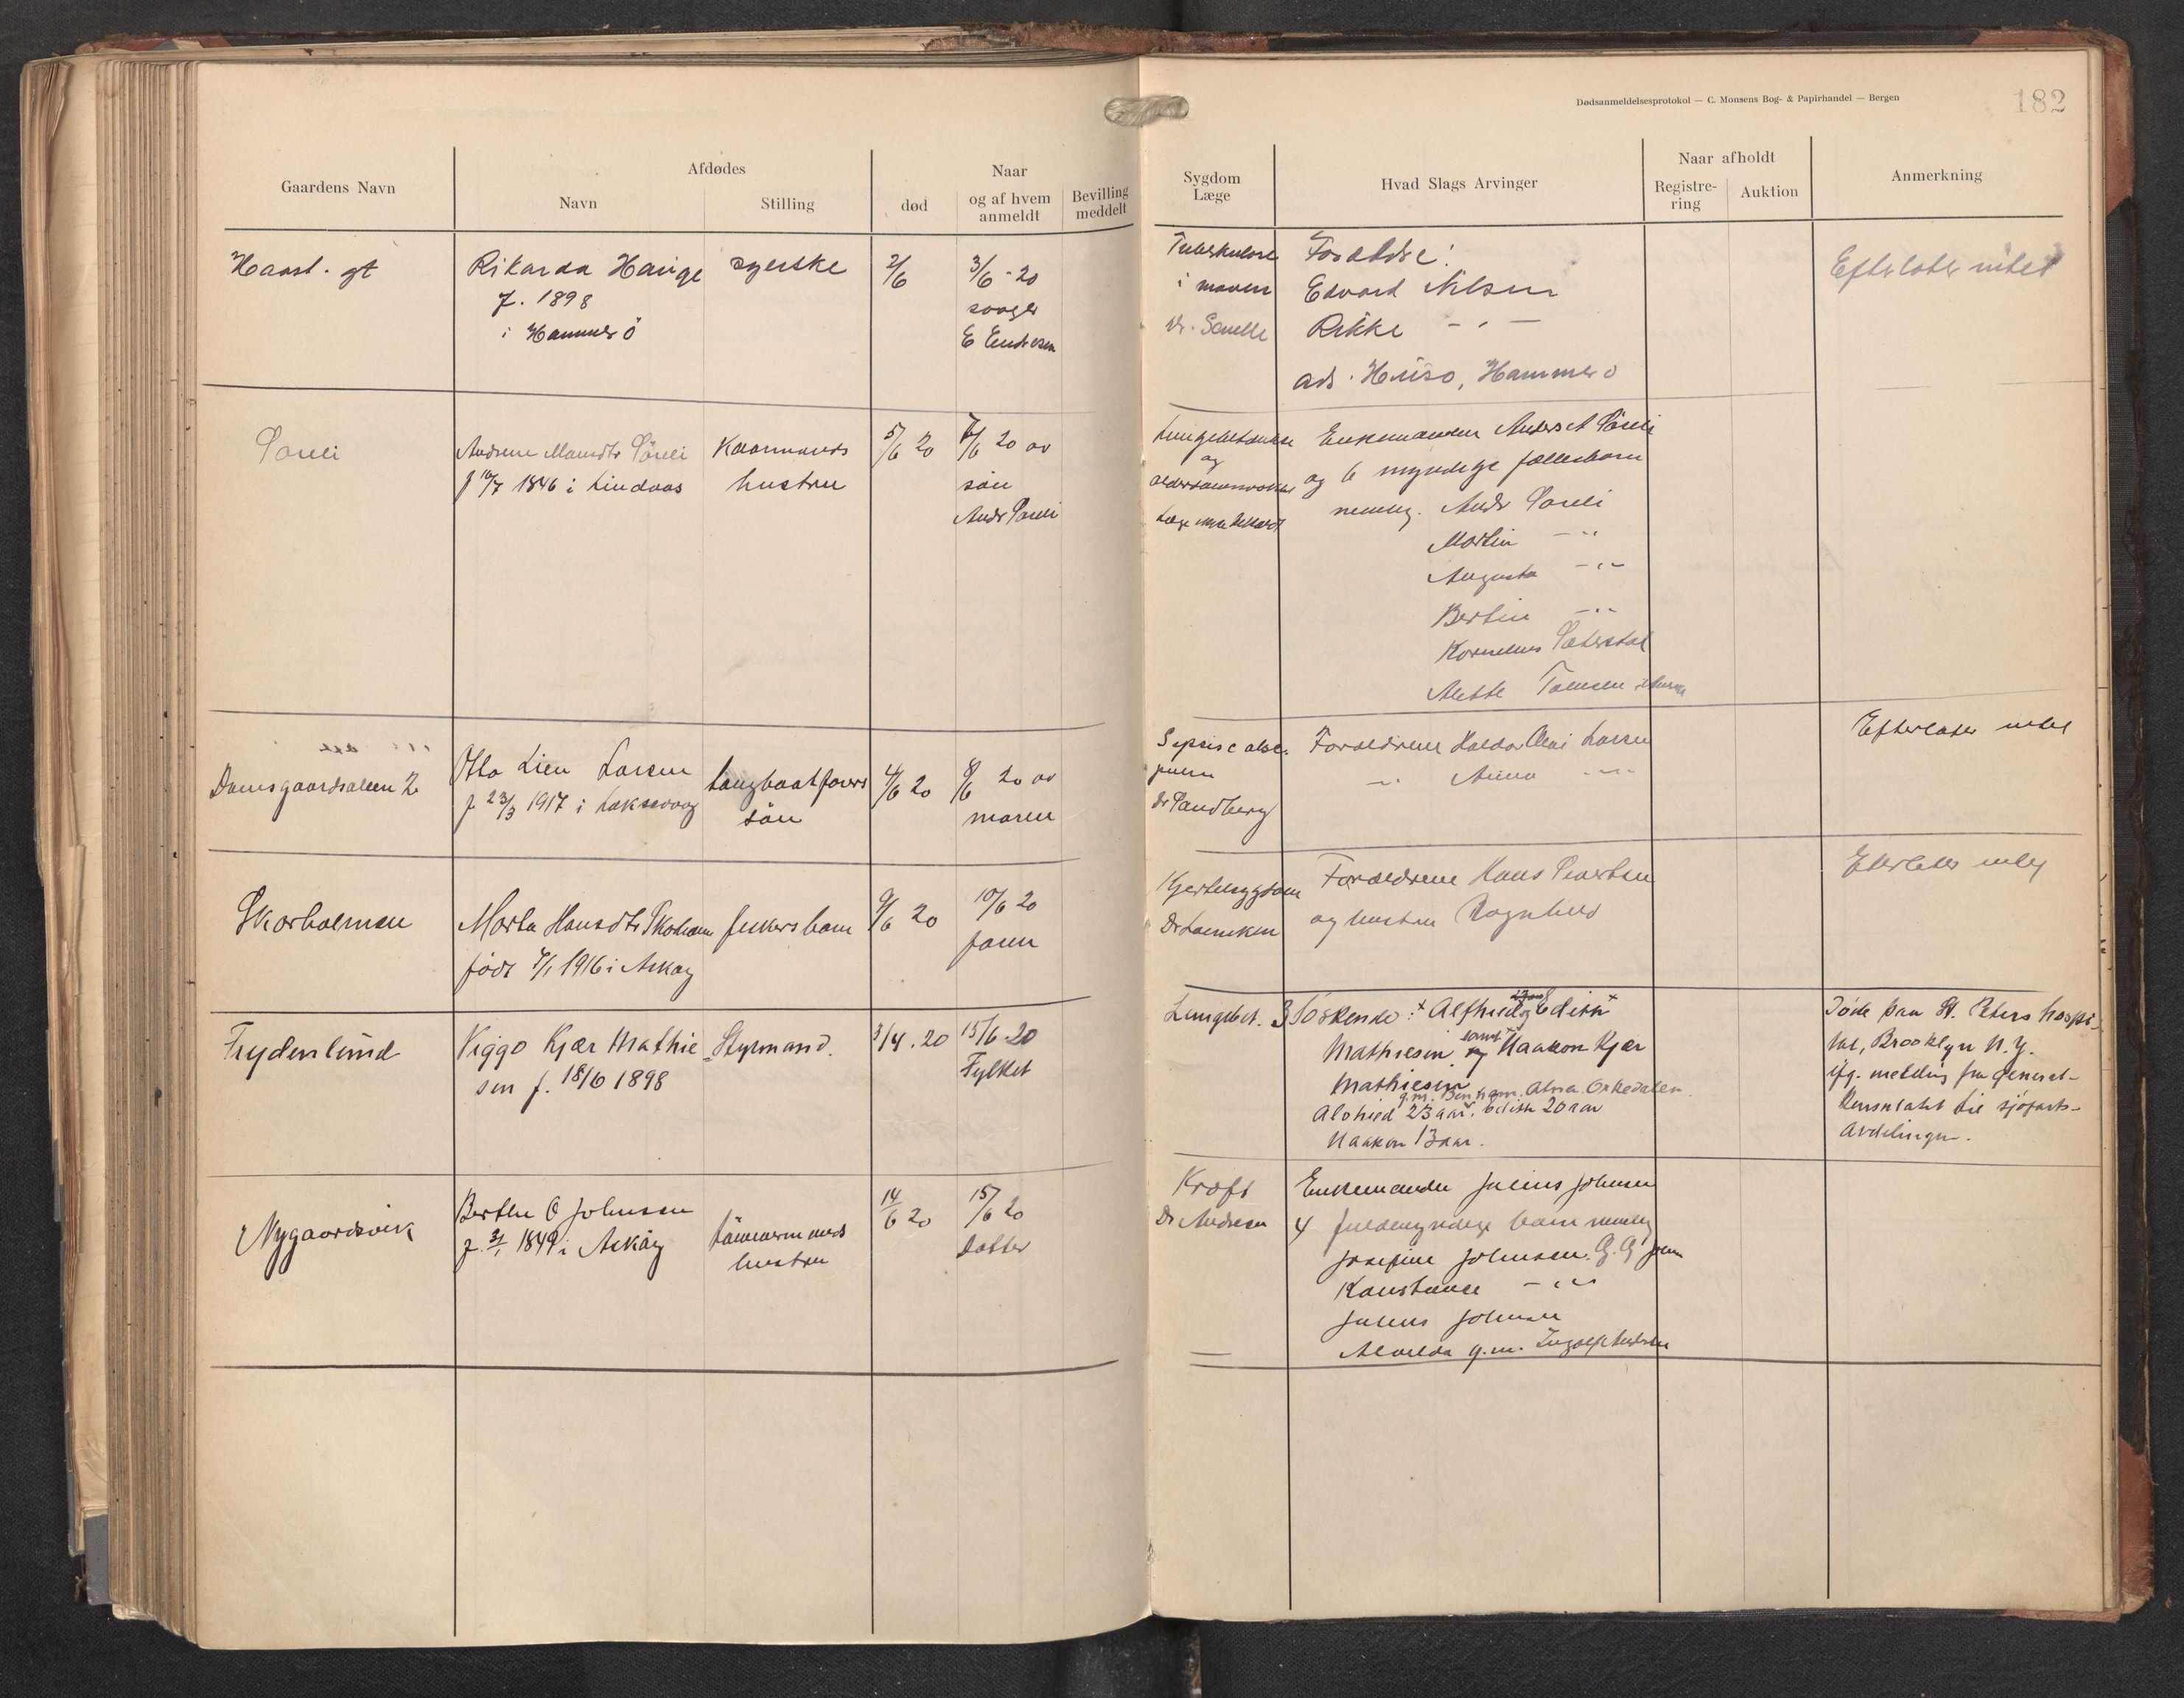 Dødsanmeldelsesprotokol — C. Monsens Bog- & Papirhandel — Bergen
182
Gaardens Navn
Afdødes
Navn
Stilling
død
Naar
og af hvem
anmeldt
Bevilling
meddelt
Sygdom
Læge
Hvad Slags Arvinger
Naar afholdt
Registre-
ring
Auktion
Anmerkning
Rikarda Hauge
f. 1898
i Hammerö
syerske
2/6
3/6 - 20
svoger
E Endresen
Tuberkulose
i maven
Dr.
Forældre:
Edvard Nilsen
Rikke - " -
ads. Husø, Hammerø
Efterlater intet
Søreli
Andrine Monsdtr Søreli
1846 i Lindaas
Kaarmands
hustru
5/6 20
20 av
søn
Andr Søreli
Lungebetændelse
og
Enkemanden Anders A Søreli
og 6 myndige fællesbørn
nemlig. Andr Søreli
Martin - " -
Augusta - " -
Bertin - " -
Kornelius Sæterstøl
Damsgaardsalleen 2
Otto Lien Larsen
f 23/3 1917 i Laksevaag
søn
4/6 20
8/6 20 av
moren
Sepsis
Dr Sandberg
Forældrene Haldor Larsen
- " - Anna - " -
Efterlater intet
Skarholmen
Marta Hansdtr
født 1916 i Askøy
fiskers barn
9/6 20
10/6 20
faren
Kjertelsygdom
Dr
Forældrene Hans Sivertsen
og hustru Ragnhild
Efterlater intet
Frydenlund
Viggo Kjær Mathie-
sen f. 18/6 1898
Styrmand.
3/4. 20
15/6-20
Fylket
Lungebet.
3 Søskende: Alfhild og Edith
Mathiesen samt Haakon Kjær
Mathiesen
23 aar. Edith 20 aar
Haakon 13 aar.
Døde paa St. Peters hospi-
tal, Brooklyn N.Y.
ifg. melding fra General-
konsulatet til sjøfarts-
avdelingen.
Nygaardsvik
Berthe O Johnsen
f. 1849 i Askøy
tømmermands
hustru
14/6 20
15/6 20
Datter
Kræft
Dr Andresen
Enkemanden Julius Johnsen
4 fuldmyndige barn nemlig
Josefine Johnsen.
Konstanse - " -
Julius Johnsen
Alvilda g.m. Ingolf